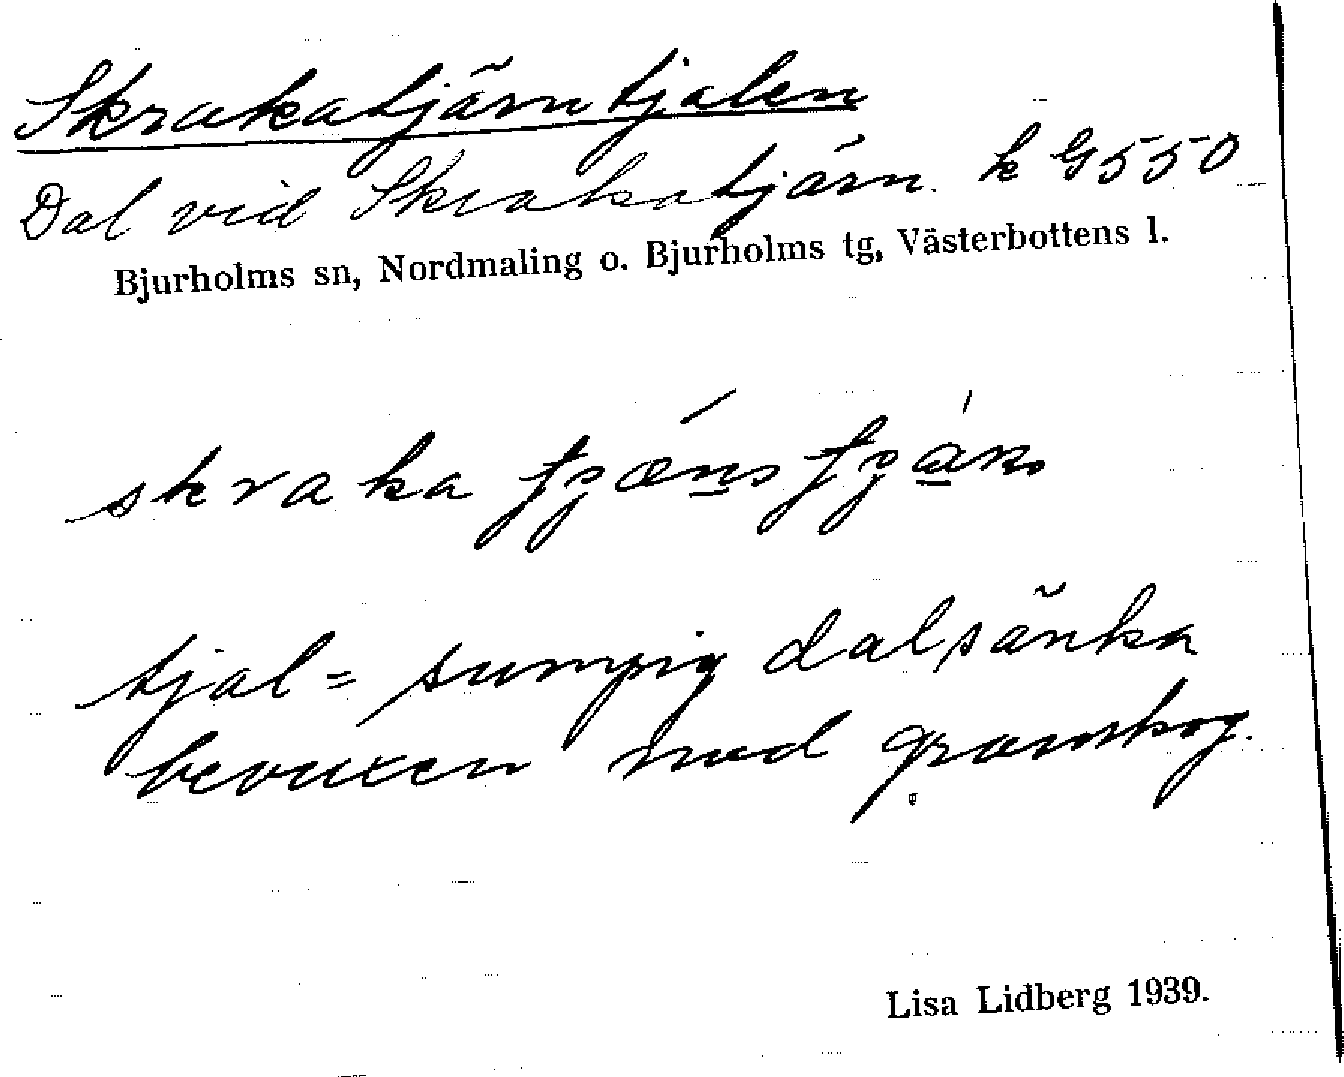 Skrakatjärntjalen
Dal vid Skrakatjärn. k G 550
Bjurholms sn, Nordmaling o. Bjurholms tg, Västerbottens l.
skraka
tjal = sumpig dalsänka
bevuxen med granskog.
Lisa Lidberg 1939.